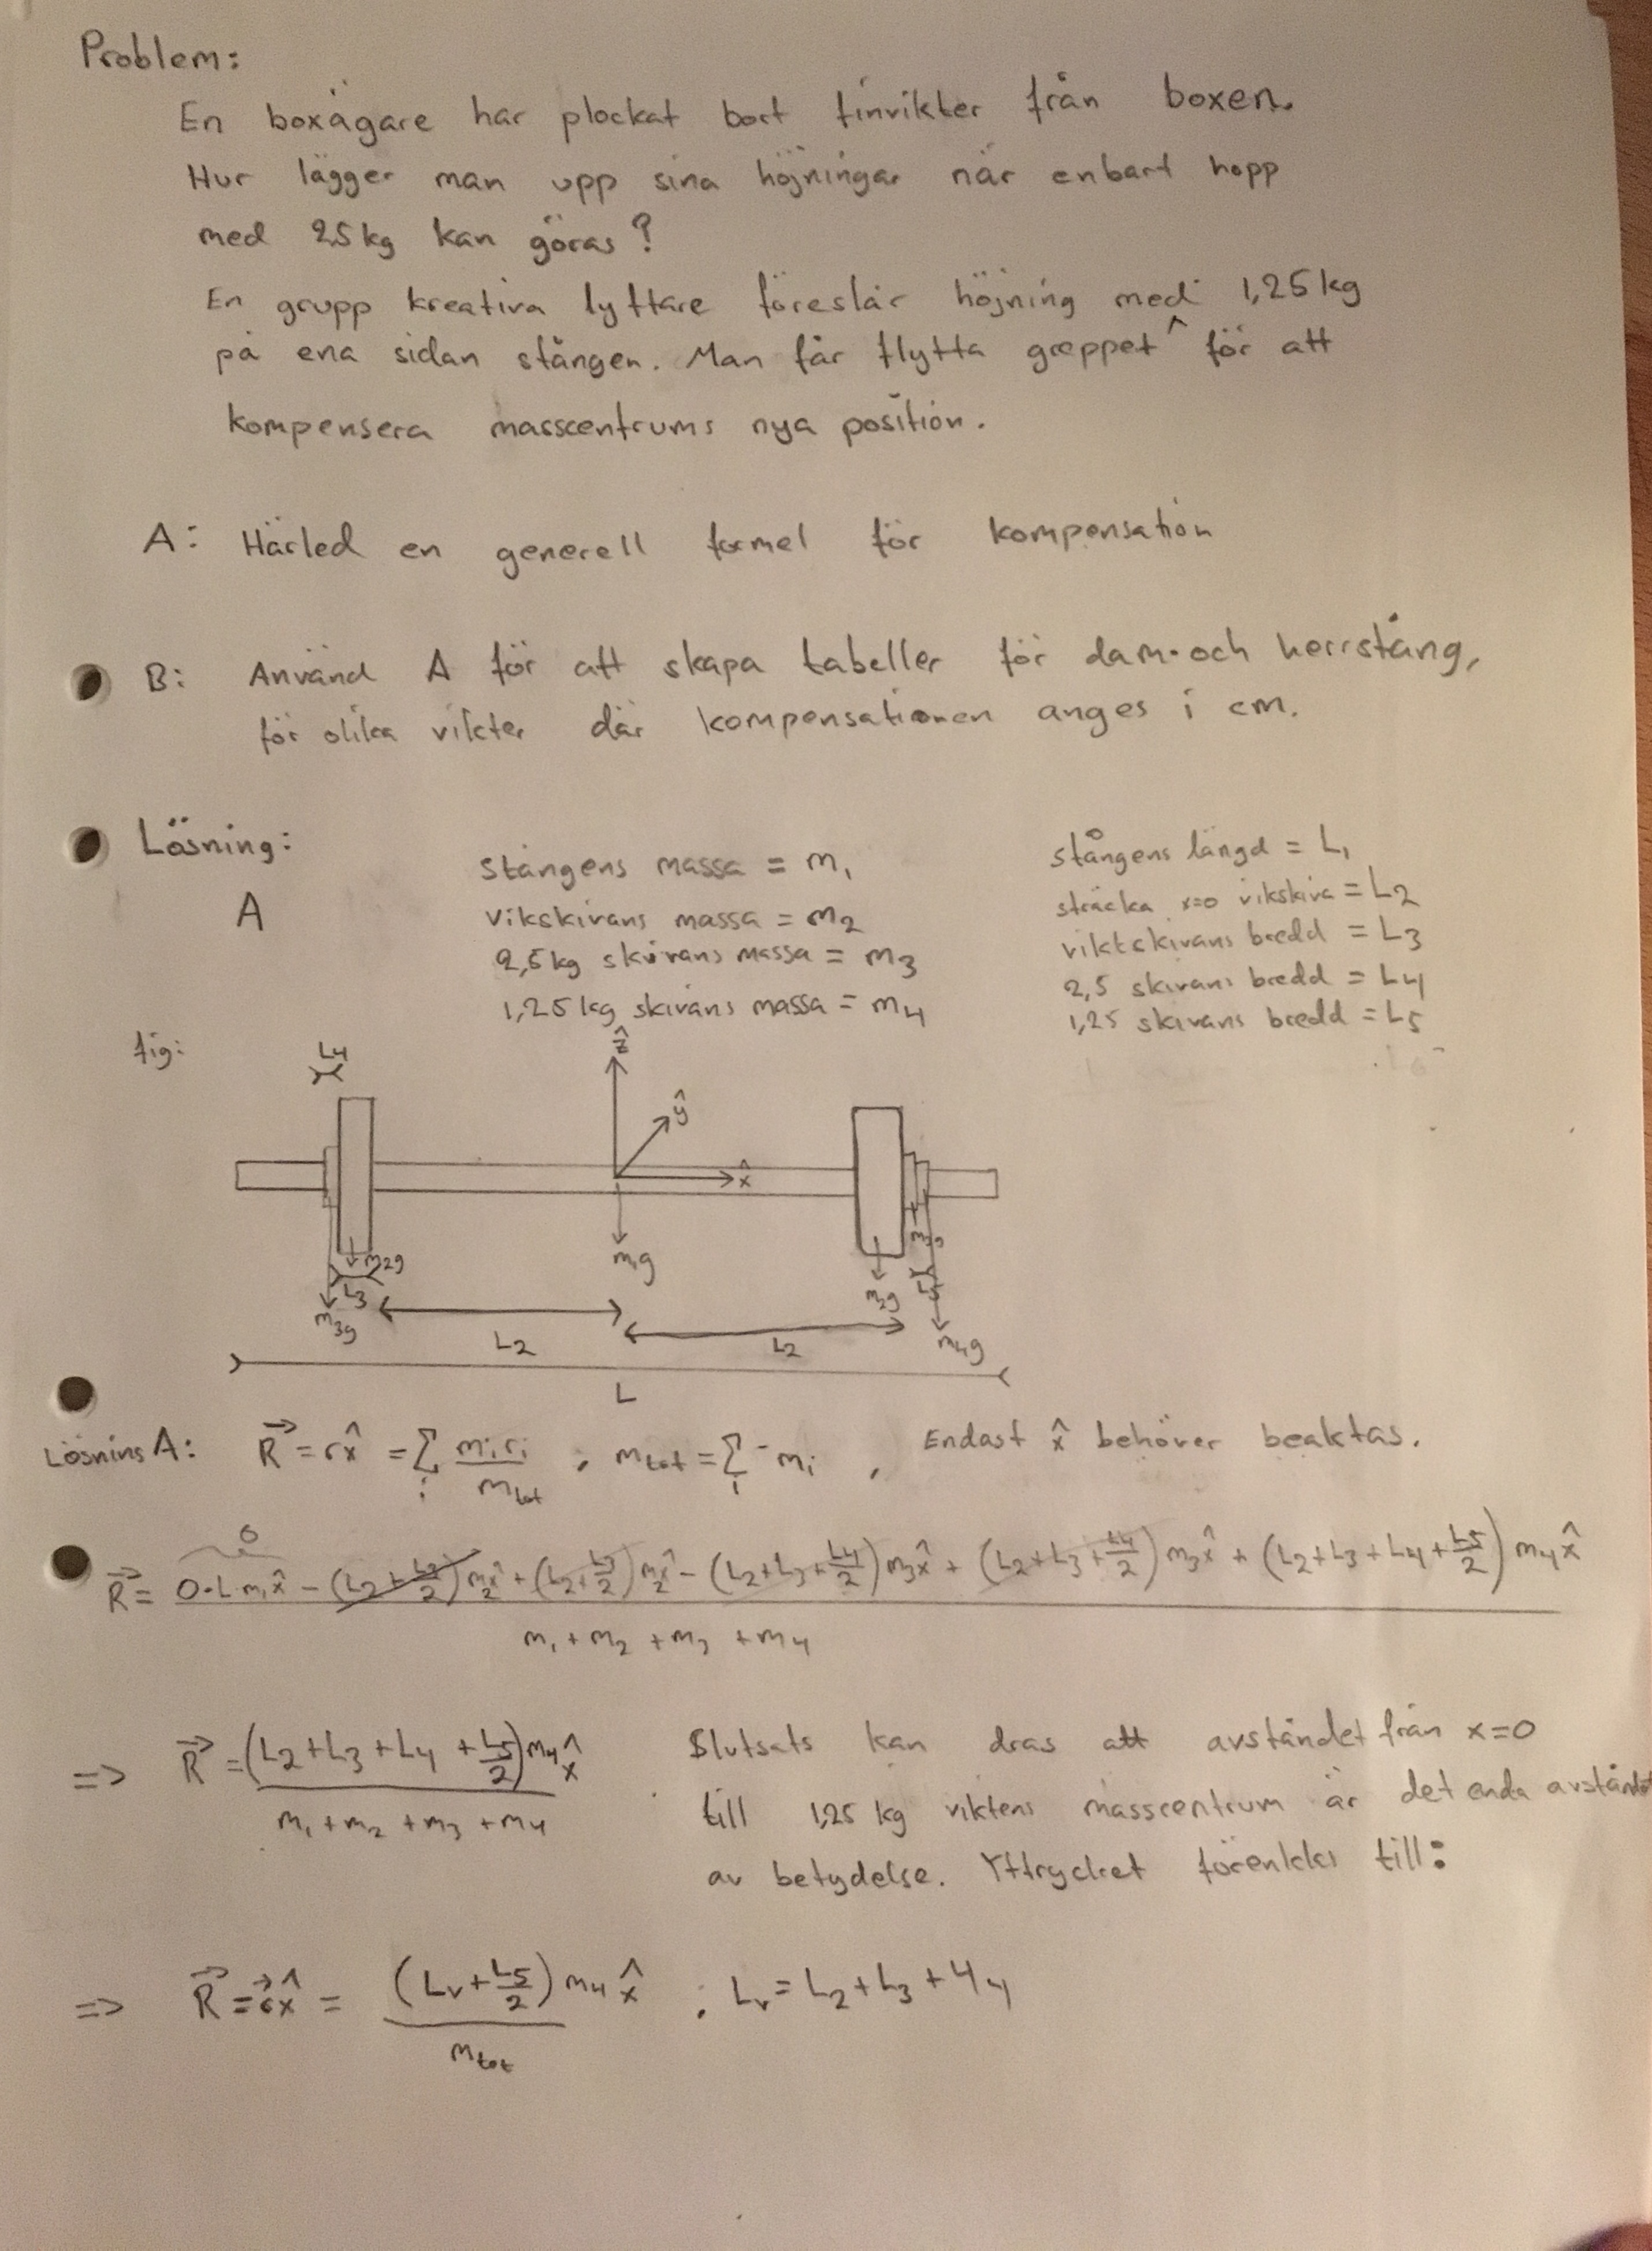 Problem:
En boxägare har plockat bort finvikter från boxen.
Hur lägger man upp sina höjningar när enbart hopp
med 2,5 kg kan göras?
En grupp kreativa lyftare föreslår höjning med 1,25 kg
på ena sidan stången. Man får flytta greppet ^ för att
kompensera masscentrums nya position.
A: Härled en generell formel för kompensation
B: Använd A för att skapa tabeller för dam- och herrstång,
för olika vikter där kompensationen anges i cm.
Lösning:
A
Stångens massa = m₁
vikskivans massa = m₂
2,5 kg skivans massa = m₃
1,25 kg skivans massa = m₄
stångens längd = L₁
sträcka x=0 vikskiva = L2
viktskivans bredd = L3
2,5 skivans bredd = L4
1,25 skivans bredd = L5
fig:
L4
ẑ
ŷ
x̂
m₂g
L3
m₃g
m₁g
m₃g
m₂g
L5
m₄g
L2
L2
L
Lösning A: R⃗ = r x̂ = Σᵢ mᵢrᵢ / m_tot ; m_tot = Σᵢ mᵢ , Endast x̂ behöver beaktas.
0
R⃗ = 0·L m₁x̂ − (L2+L3/2) m₂x̂ + (L2+L3/2) m₂x̂ − (L2+L3+L4/2) m₃x̂ + (L2+L3+L4/2) m₃x̂ + (L2+L3+L4+L5/2) m₄x̂
m₁ + m₂ + m₃ + m₄
=> R⃗ = (L2+L3+L4+L5/2) m₄ x̂
m₁ + m₂ + m₃ + m₄
Slutsats kan dras att avståndet från x=0
till 1,25 kg viktens masscentrum är det enda avståndet
av betydelse. Yttrycket förenklas till:
=> R⃗ = r⃗x̂ = (Lv+L5/2) m₄ x̂ / m_tot ; Lv = L2+L3+44